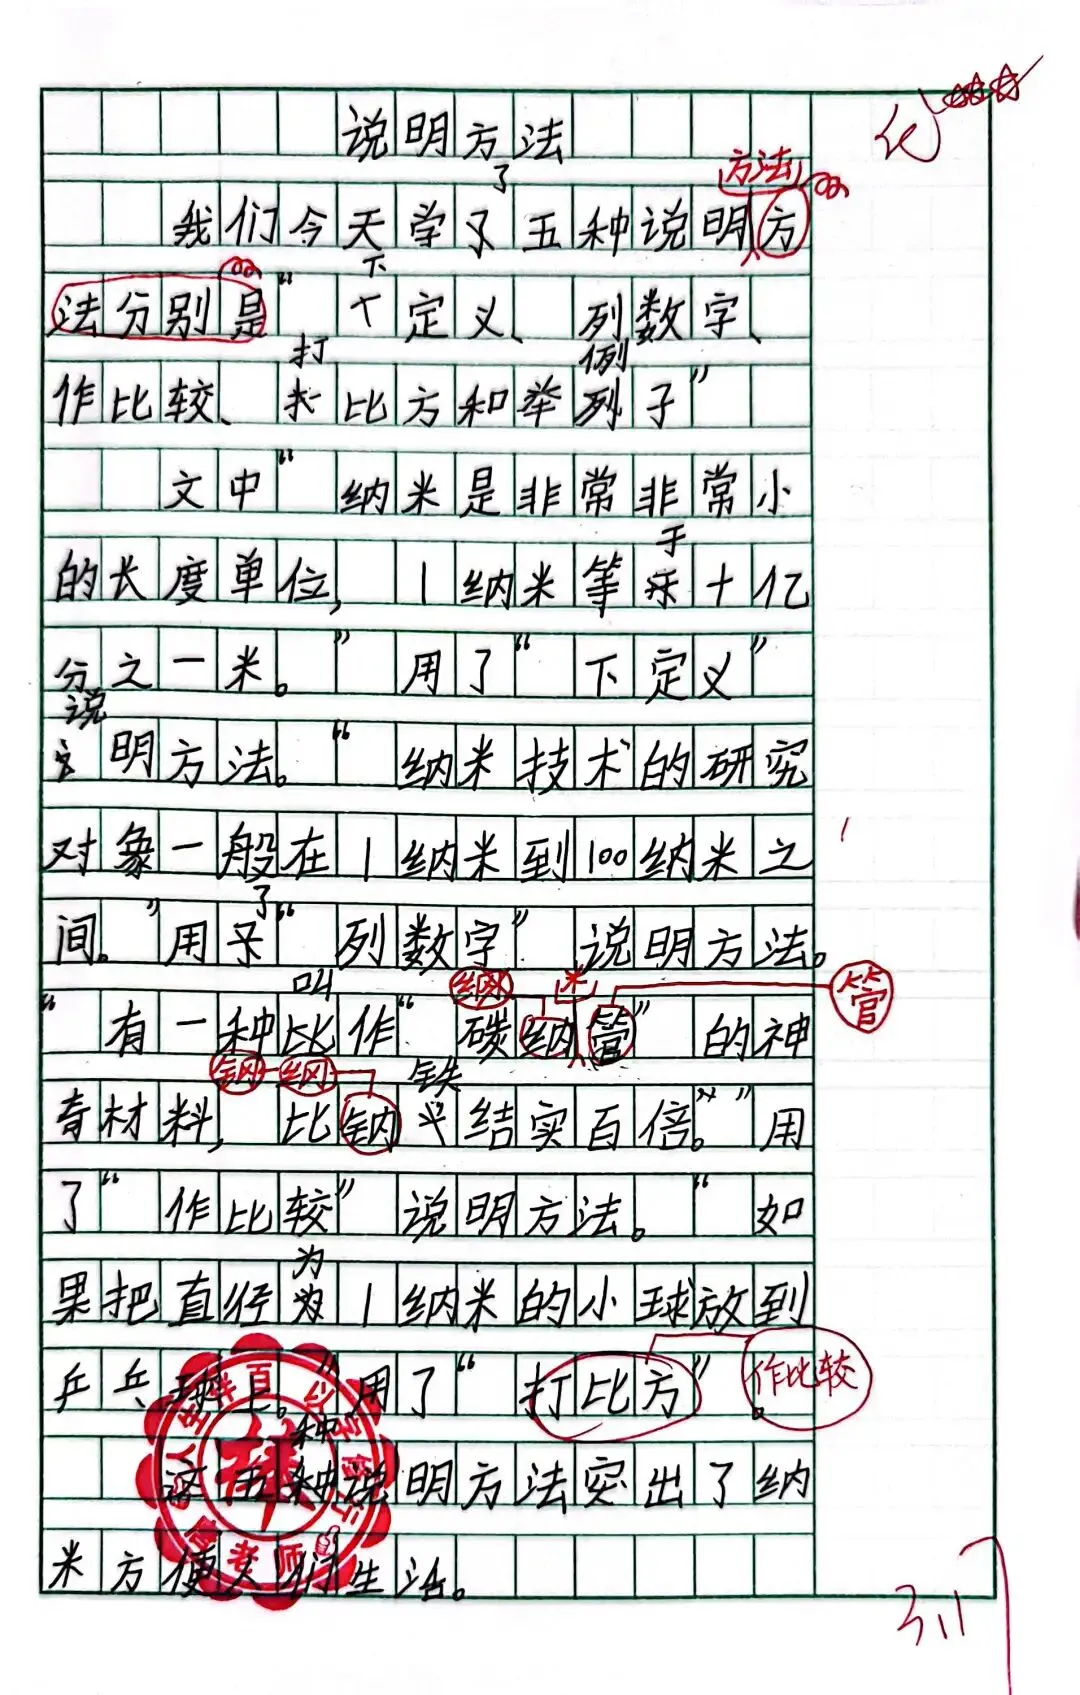 说明方法
方法
了
我们今天学了五种说明方
下
法分别是“下定义、列数字、
打 例
作比较、比方和举列子”
文中“纳米是非常非常小
于
的长度单位,1纳米等 十亿
分之一米。”用了“下定义”
说
明方法。“纳米技术的研究
对象一般在1纳米到100纳米之
了
间。”用 “列数字”说明方法。
叫 纲 米 管
“有一种比作“碳纳管”的神
钢 纲 铁
奇材料,比钠 结实百倍。”用
了“作比较”说明方法。“如
为
果把直径 1纳米的小球放到
乒乓球上。”用了“打比方”。 作比较
种
这五种说明方法突出了纳
米方便人们生活。
优
3.17
老师